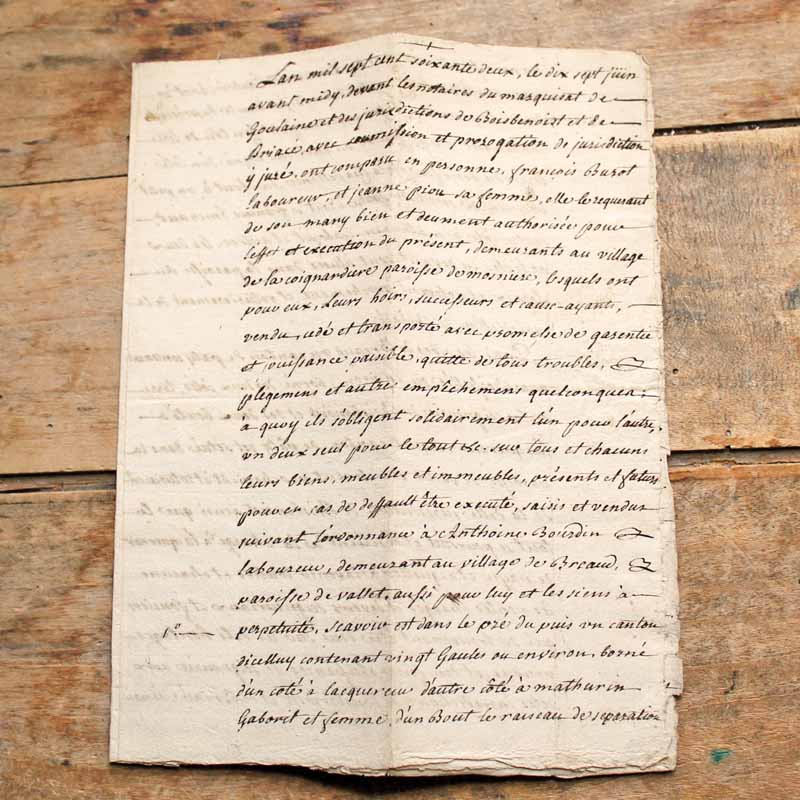 Lan mil sept cent soixante deux, le dix sept juin
avant midy, devant les notaires du marquisat de
Goulaine et des jurisdictions de Boisbenoist et de
Briacé, avec soumission et prorogation de jurisdiction
y juré, ont comparu en personne, françois Burot
laboureur, et jeanne piou sa femme, elle le requerant
de son mary bien et deument authorisée pour
l'effet et execution du présent, demeurants au village
de la coignardiere paroisse de mosniere, lesquels ont
pour eux, leurs hoirs, successeurs et cause-ayants,
vendu, cedé et transporté avec promesse de garentie
et jouissance paisible, quitte de tous troubles, &
plegemens et autre empêchemens quelconques;
à quoy ils s'obligent solidairement l'un pour l'autre,
un deux seul pour le tout &c. sur tous et chacuns
leurs biens, meubles et immeubles, présents et futurs
pour en cas de deffault être executé, saisis et vendus
suivant l'ordonnance à Anthoine Bourdin &
laboureur, demeurant au village de Breaud, &
paroisse de vallet, aussi pour luy et les siens à
1° perpetuité, sçavoir est dans le pré du puis un canton
dicelluy contenant vingt Gaules ou environ, borné
d'un coté à lacquereur d'autre côté à mathurin
Gaborit et femme, d'un Bout le raiseau de separation